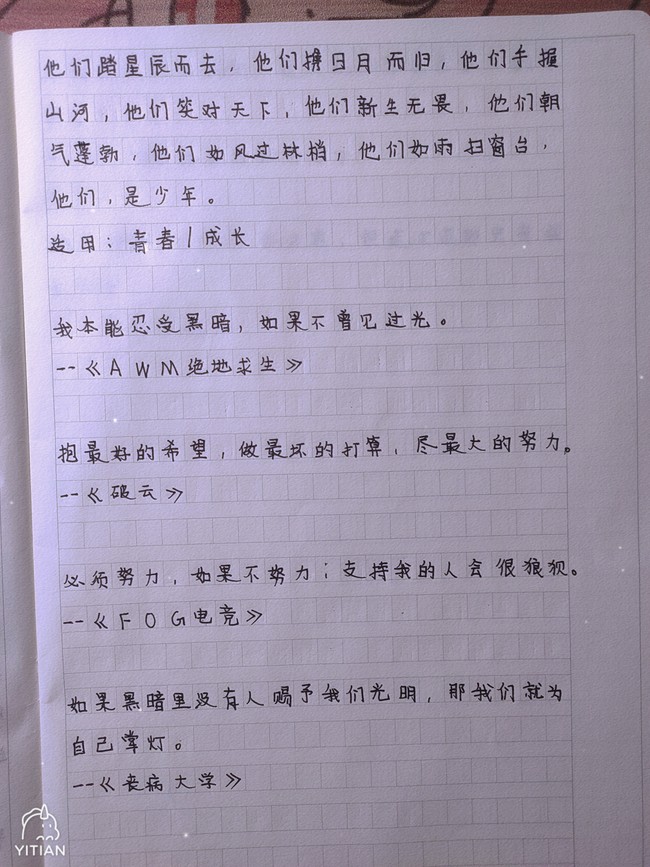 他们踏星辰而去，他们携日月而归，他们手握
山河，他们笑对天下，他们新生无畏，他们朝
气蓬勃，他们如风过林梢，他们如雨扫窗台，
他们，是少年。
适用：青春/成长
我本能忍受黑暗，如果不曾见过光。
--《AWM绝地求生》
抱最好的希望，做最坏的打算，尽最大的努力。
--《破云》
必须努力，如果不努力；支持我的人会很狼狈。
--《FOG电竞》
如果黑暗里没有人赐予我们光明，那我们就为
自己掌灯。
--《丧病大学》
YITIAN